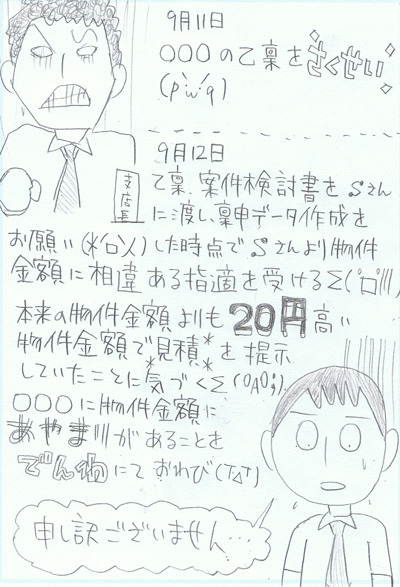 9月11日
○○○の乙稟をさくせい
(p'ω'q)
9月12日
支店長
乙稟、案件検討書をSさん
に渡し、稟申データ作成を
お願い(*'ロ乂)した時点でSさんより物件
金額に相違ある指適を受けるΣ('ロ'|||)
本来の物件金額よりも20円高い
物件金額で*見積*を提示
していたことに*気づくΣ(OAO;)
○○○に物件金額に
あやまりがあることを
でん物にておわび(T△T)
申し訳ございません…